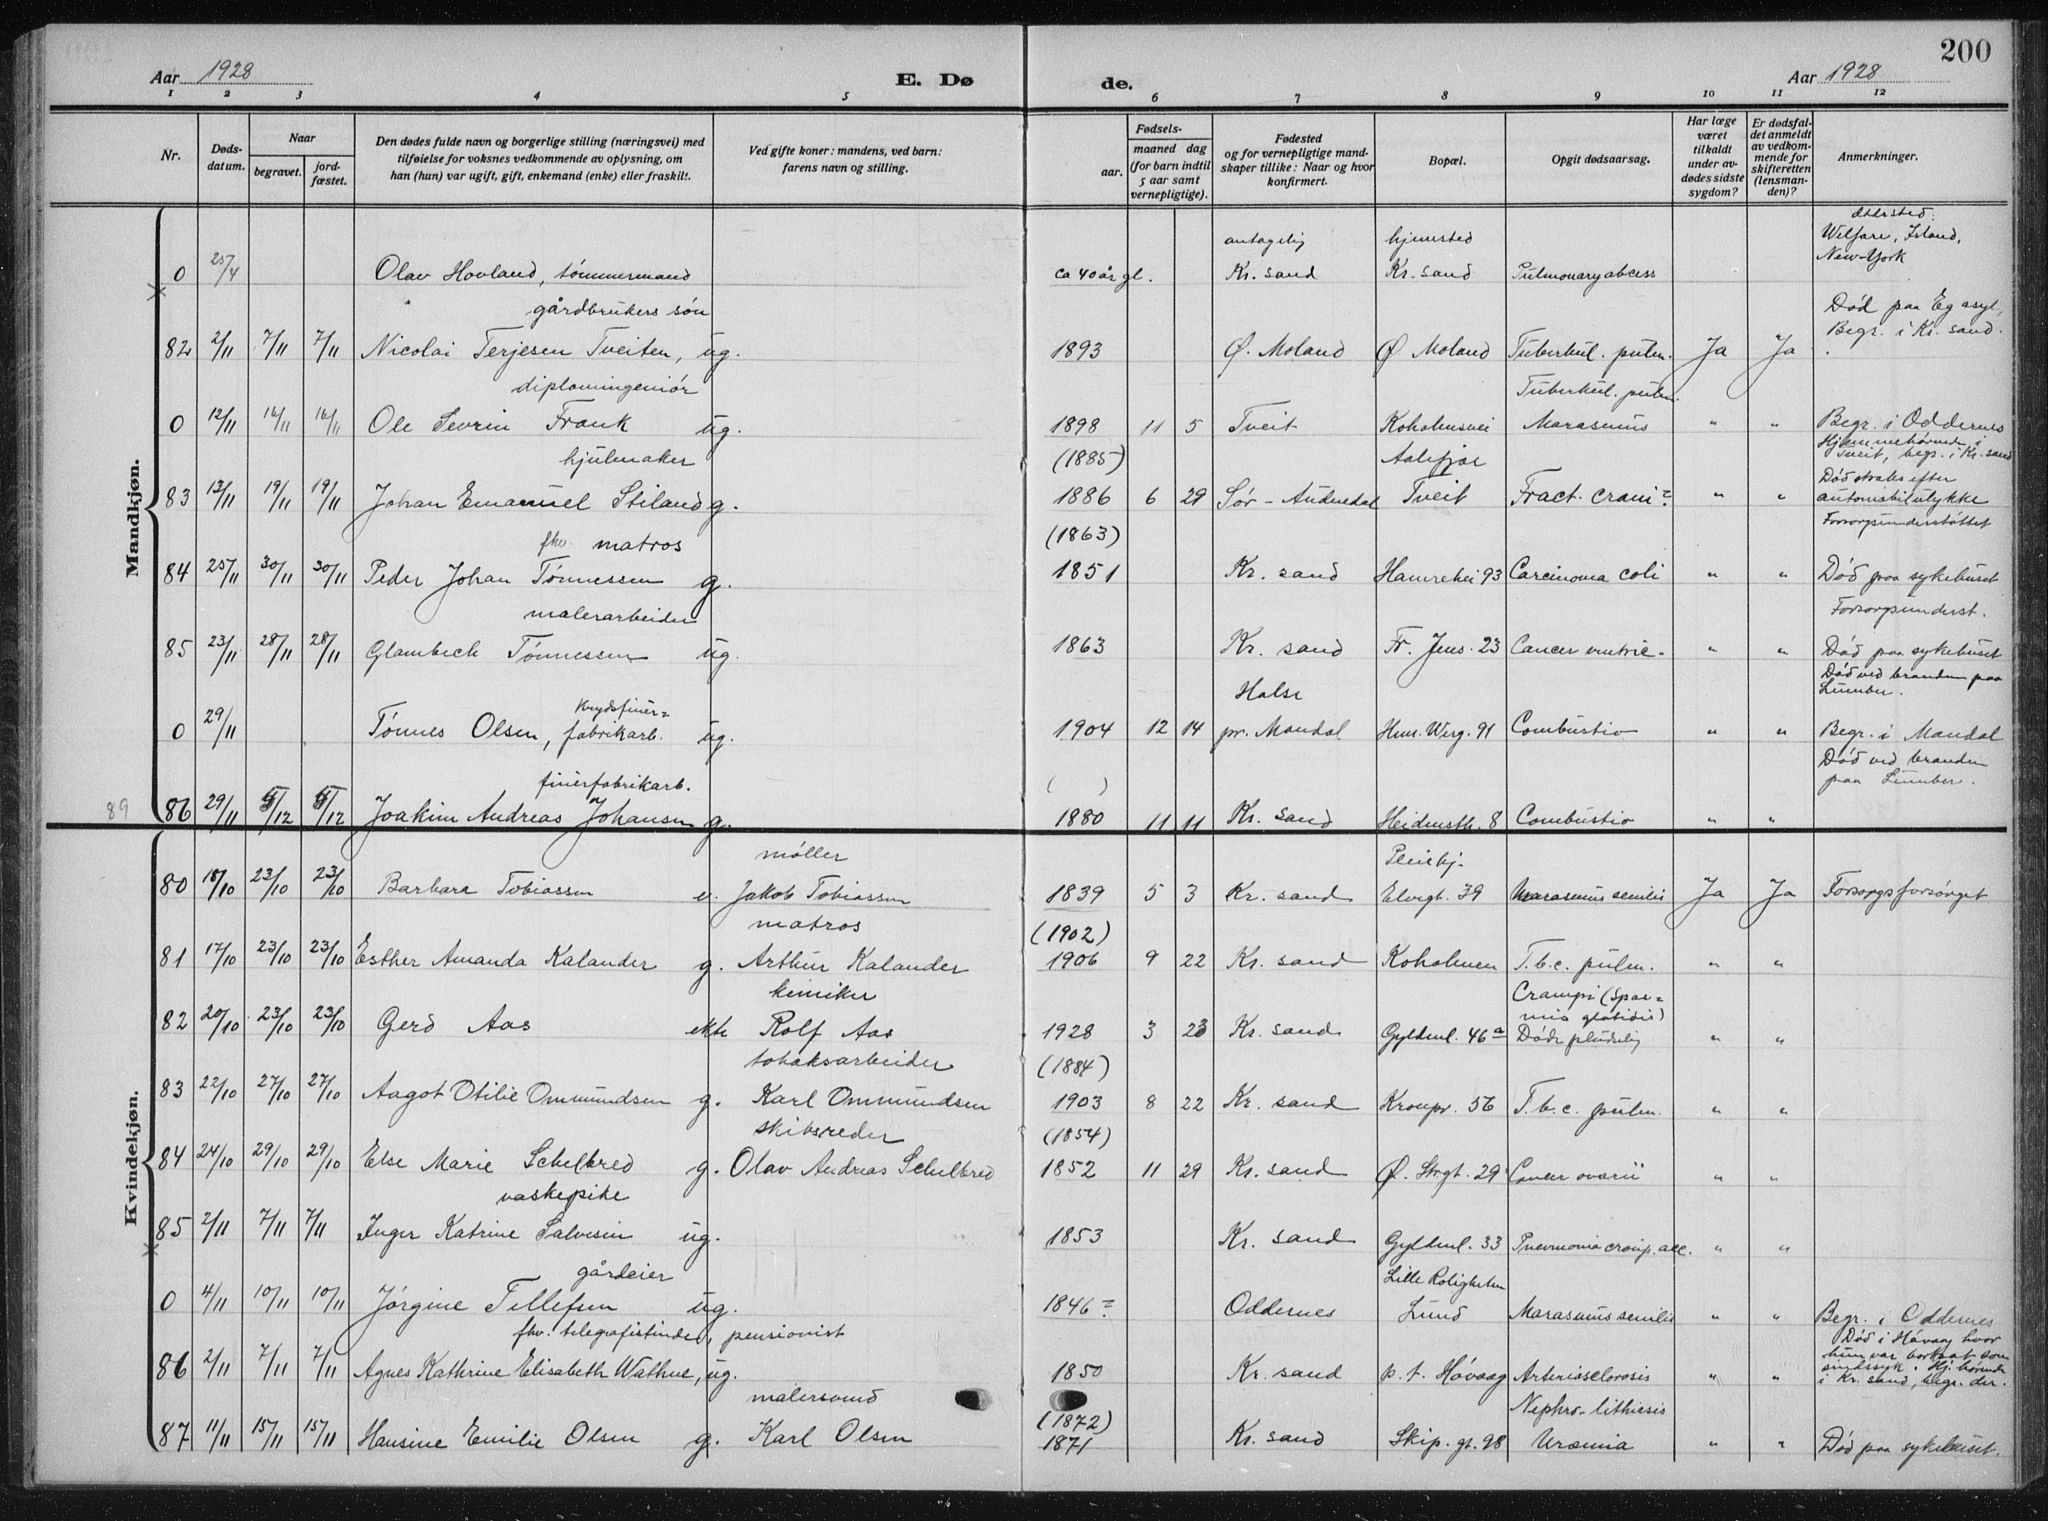 200
Aar 1928
E. Dø
de.
Aar 1928
1 2 3 4 5 6 7 8 9 10 11 12
Nr.
Døds-datum.
Naar
begravet.
jord-fæstet.
Den dødes fulde navn og borgerlige stilling (næringsvei) med tilføielse for voksnes vedkommende av oplysning, om han (hun) var ugift, gift, enkemand (enke) eller fraskilt.
Ved gifte koner: mandens, ved barn: farens navn og stilling.
Fødsels-
aar.
maaned dag (for barn indtil 5 aar samt vernepligtige).
Fødested og for vernepligtige mandskaper tillike: Naar og hvor konfirmert.
Bopæl.
Opgit dødsaarsag.
Har læge været tilkaldt under avdødes sidste sygdom?
Er dødsfaldet anmeldt av vedkommende for skifteretten (lensmanden)?
Anmerkninger.
Mandkjøn.
antagelig hjemsted Welfare, Island, New-York
0 25/4 Olav Hovland, tømmermand ca 40 år gl. Kr. sand Kr. sand Pulmonary abcess
gårdbrukers søn Død paa Eg asyl, Begr. i Kr. sand.
82 2/11 7/11 7/11 Nicolai Terjesen Tveiten, ug. 1893 Ø. Moland Ø Moland Tuberkul. pulm. Ja Ja
diplomingeniør Tuberkul. pulm.
0 12/11 16/11 16/11 Ole Sevrin Frank ug. 1898 11 5 Tveit Koholmsvei Marasmus " " Begr. i Oddernes
hjulmaker (1885) Hjemmehørende i Tveit, begr. i Kr. sand
83 13/11 19/11 19/11 Johan Emanuel Stiland g. 1886 6 29 Sør-Audnedal Tveit Fract. crani= " " Død straks efter automobilulykke
fhv. matros (1863) Forsorgsunderstøttet
84 25/11 30/11 30/11 Peder Johan Tønnessen g. 1851 Kr. sand Hamrehei 93 Carcinoma coli " " Død paa sykehuset
malerarbeider Forsorgsunderst.
85 23/11 28/11 28/11 Glambech Tønnessen ug. 1863 Kr. sand Fr. Jens. 23 Cancer ventric- " " Død paa sykehuset
Halse Død ved branden paa Lumber.
krydsfiner=
0 29/11 Tønnes Olsen, fabrikarb. ug. 1904 12 14 pr. Mandal Hen. Werg. 91 Combustio " " Begr. i Mandal
finerfabrikarb. ( ) Død ved branden paa Lumber.
89 86 29/11 5/12 5/12 Joakim Andreas Johansen g. 1880 11 11 Kr. sand Heidensth. 8 Combustio " "
Kvindekjøn.
møller Pleiehj.
80 18/10 23/10 23/10 Barbara Tobiassen e. Jakob Tobiassen 1839 5 3 Kr. sand Elvegt. 39 Marasmus senilis Ja Ja Forsorgsforsørget
matros (1902)
81 17/10 23/10 23/10 Esther Amanda Kalander g. Arthur Kalander 1906 9 22 Kr. sand Koholmen T.b.c. pulm. " "
kemiker Crampi (Spas=mus glotidis)
82 20/10 23/10 23/10 Gerd Aas ekte Rolf Aas 1928 3 23 Kr. sand Gyldenl. 46a Døde pludselig " "
tobaksarbeider (1884)
83 22/10 27/10 27/10 Aagot Otilie Ommundsen g. Karl Ommundsen 1903 8 22 Kr. sand Kronpr. 56 T.b.c. pulm. " "
skibsreder (1854)
84 24/10 29/10 29/10 Else Marie Schelbred g. Olav Andreas Schelbred 1852 11 29 Kr. sand Ø. Strgt. 29 Cancer ovarii " "
vaskepike
85 2/11 7/11 7/11 Inger Katrine Salvesen ug. 1853 Kr. sand Gyldenl. 33 Pneumonia croup. acc. " "
gårdeier Lille Roligheten
0 4/11 10/11 10/11 Jørgine Tellefsen ug. 1846= Oddernes Lund Marasmus senilis " " Begr. i Oddernes
fhv. telegrafistinde, pensionist Død i Høvaag hvor hun var bortsat som sindssyk. Hj. hørende i Kr. sand, begr. der.
86 2/11 7/11 7/11 Agnes Kathrine Elisabeth Wathne, ug. 1850 Kr. sand p.t. Høvaag Arteriosclerosis " "
malersvend (1872) Nephro-lithiasis
87 11/11 15/11 15/11 Hansine Emilie Olsen g. Karl Olsen 1871 Kr. sand Skip. gt. 98 Uræmia " " Død paa sykehuset.